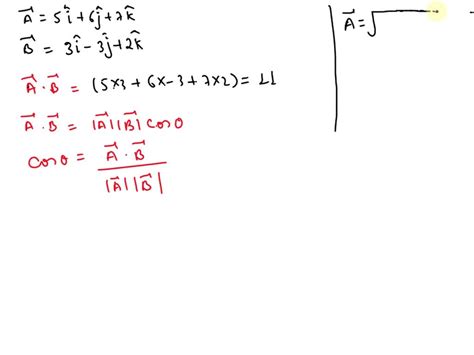 A⃗ = 5î+6ĵ+7k̂
B⃗ = 3î-3ĵ+2k̂
A⃗·B⃗ = (5×3+6×-3+7×2) = 11
A⃗·B⃗ = |A⃗||B⃗|cosθ
cosθ = A⃗·B⃗
|A⃗||B⃗|
A⃗=√